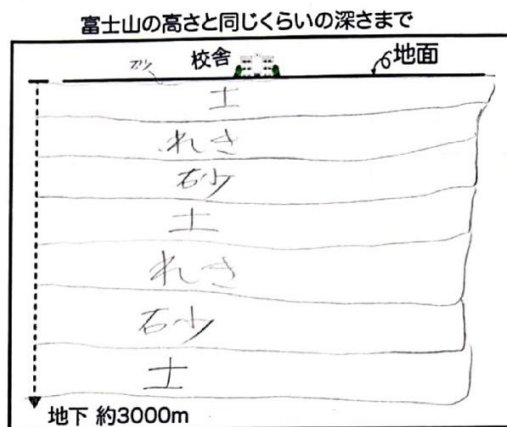 富士山の高さと同じくらいの深さまで
校舎 地面
土
れき
砂
土
れき
砂
土
地下 約3000m